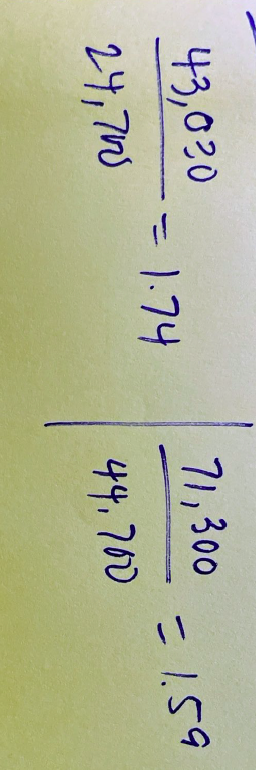 43,030
24,700 = 1.74
71,300
44,700 = 1.59